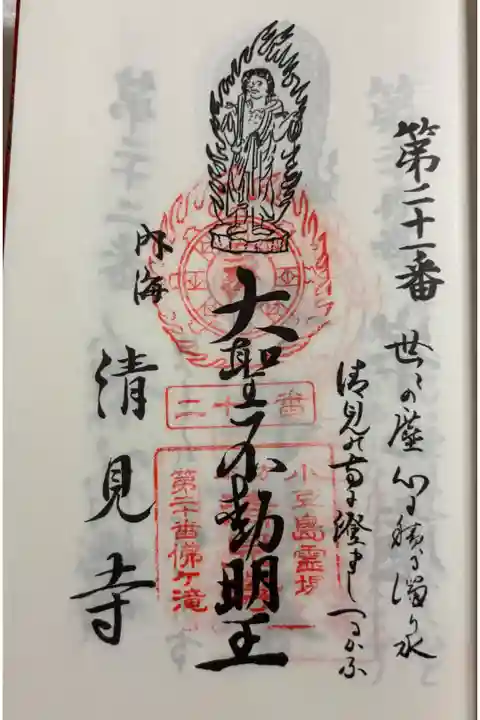 第二十一番
世々の塵心に積る濁り水
清見の寺に澄ましつるかな
大聖不動明王
内海
清見寺
二十番
小豆島霊場
第二十番佛ケ滝